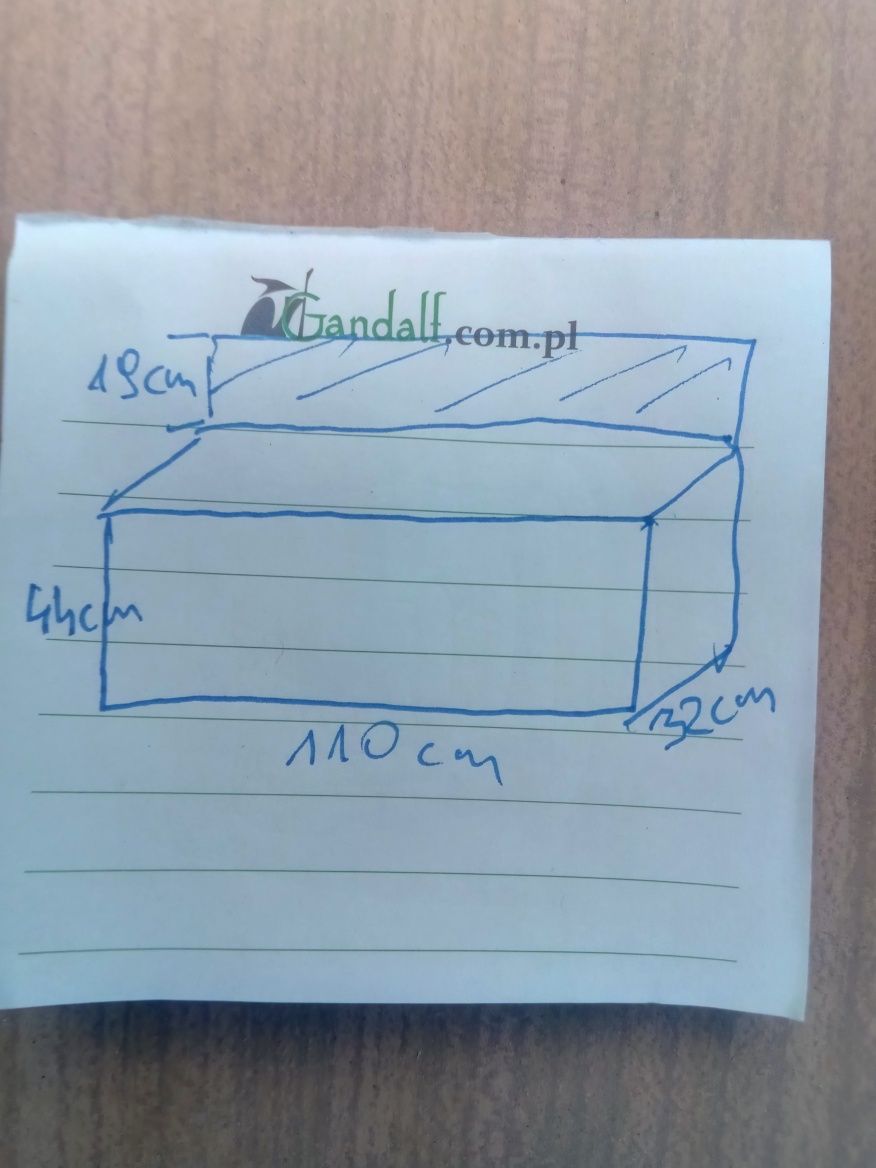 Gandalf.com.pl
19cm
44cm
110cm
32cm